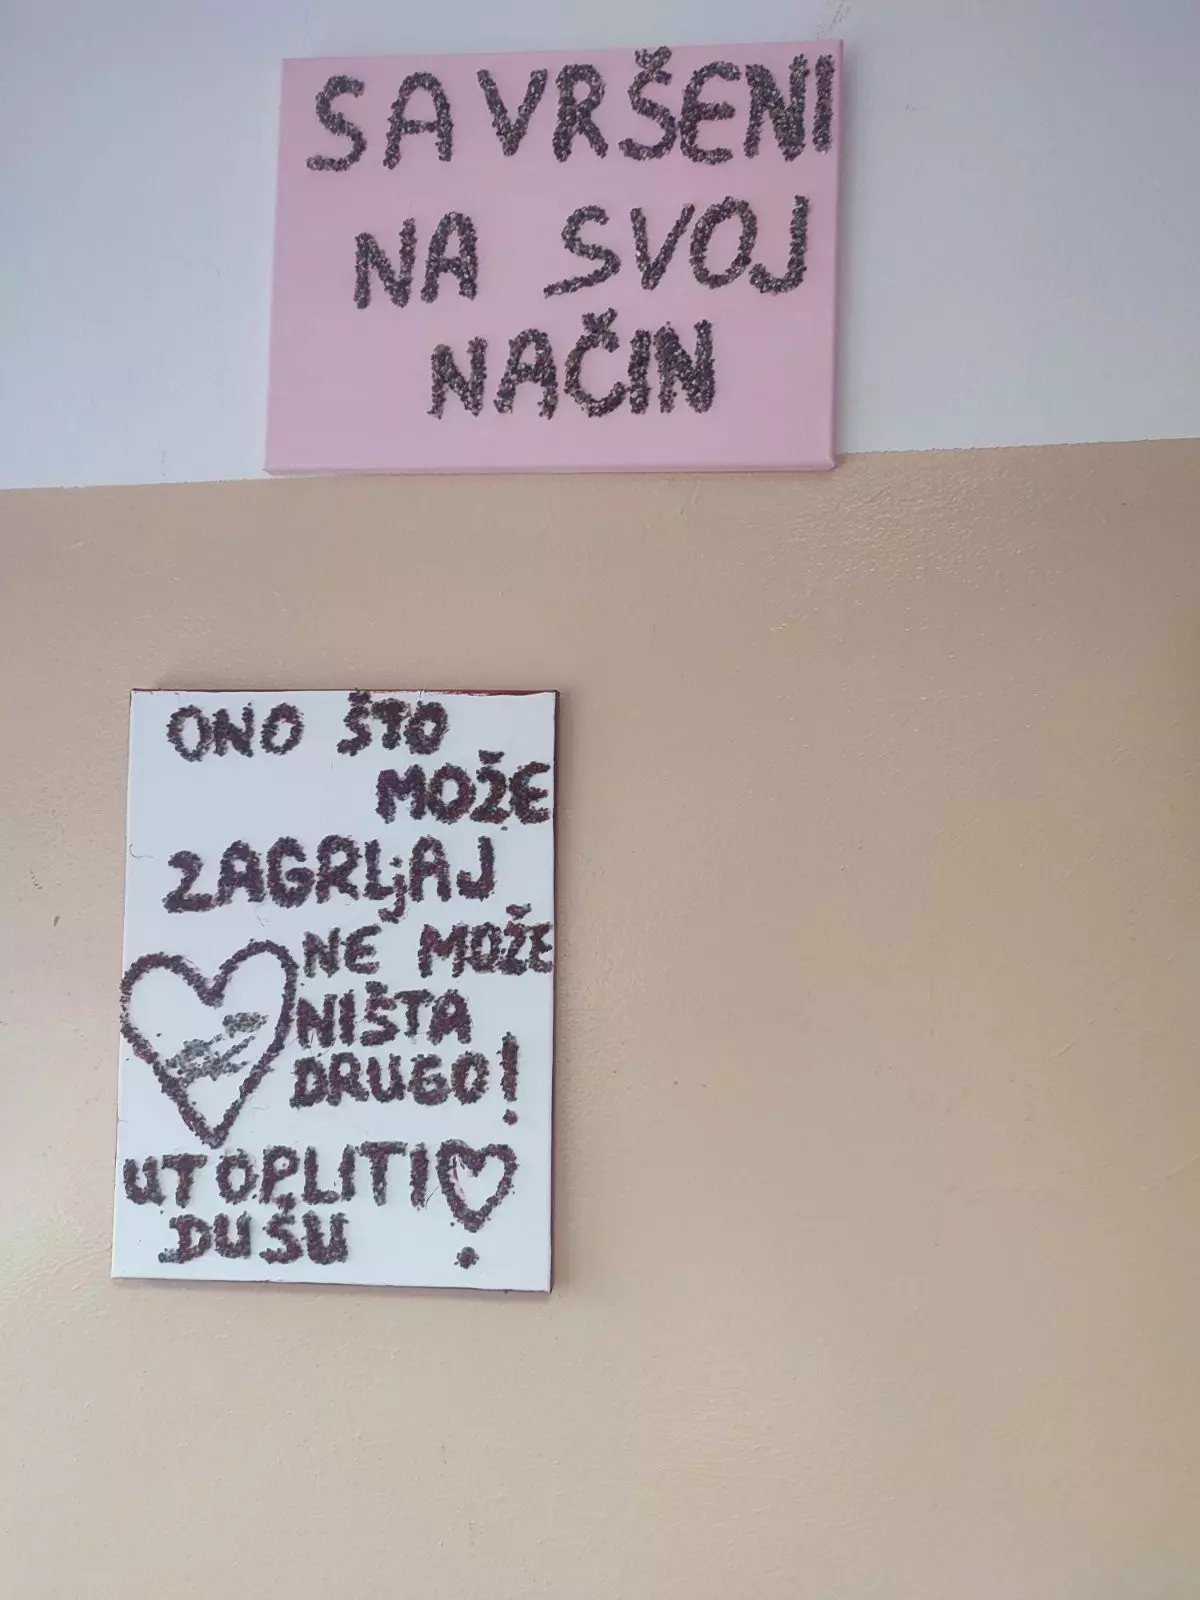 SAVRŠENI
NA SVOJ
NAČIN
ONO ŠTO
MOŽE
ZAGRLjAJ
NE MOŽE
NIŠTA
DRUGO!
UTOPLITI
DUŠU